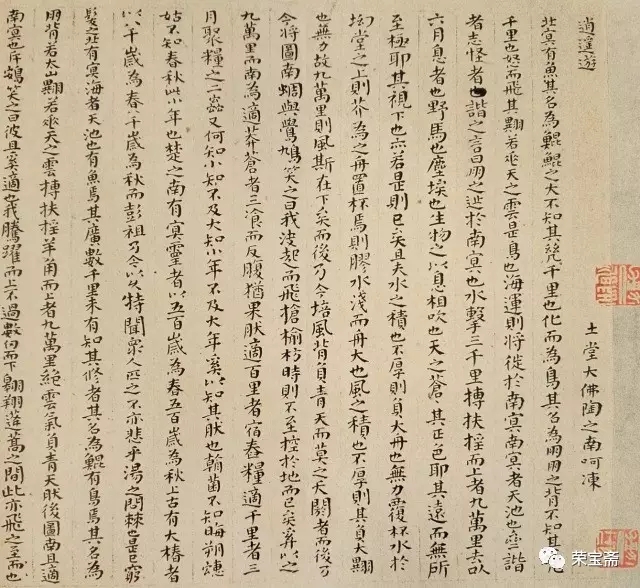 逍遙遊
土堂大佛陶之南呵凍
北冥有魚其名為鯤鯤之大不知其幾千里也化而為鳥其名為朋朋之背不知其幾
千里也怒而飛其翼若垂天之雲是鳥也海運則將徙於南冥南冥者天池也齊諧
者志怪者也諧之言曰朋之徙於南冥也水擊三千里摶扶搖而上者九萬里去以
六月息者也野馬也塵埃也生物之以息相吹也天之蒼〻其正色耶其遠而無所
至極耶其視下也亦若是則已矣且夫水之積也不厚則負大舟也無力覆杯水於
坳堂之上則芥為之舟置杯焉則膠水淺而舟大也風之積也不厚則其負大翼
也無力故九萬里則風斯在下矣而後乃今培風背負青天而莫之夭閼者而後乃
今將圖南蜩與鷽鳩笑之曰我決起而飛搶榆枋時則不至控於地而已矣奚以之
九萬里而南為適莽蒼者三飡而反腹猶果然適百里者宿舂糧適千里者三
月聚糧之二蟲又何知小知不及大知小年不及大年奚以知其然也朝菌不知晦朔蟪
姑不知春秋此小年也楚之南有冥靈者以五百歲為春五百歲為秋上古有大椿者
以八千歲為春八千歲為秋而彭祖乃今以久特聞衆人匹之不亦悲乎湯之問棘也是已窮
髮之北有冥海者天池也有魚焉其廣數千里未有知其修者其名為鯤有鳥焉其名為
朋背若太山翼若垂天之雲摶扶搖羊角而上者九萬里絕雲氣負青天然後圖南且適
南冥也斥鴳笑之曰彼且奚適也我騰躍而上不過數仞而下翱翔蓬蒿之間此亦飛之至而也
荣宝斋